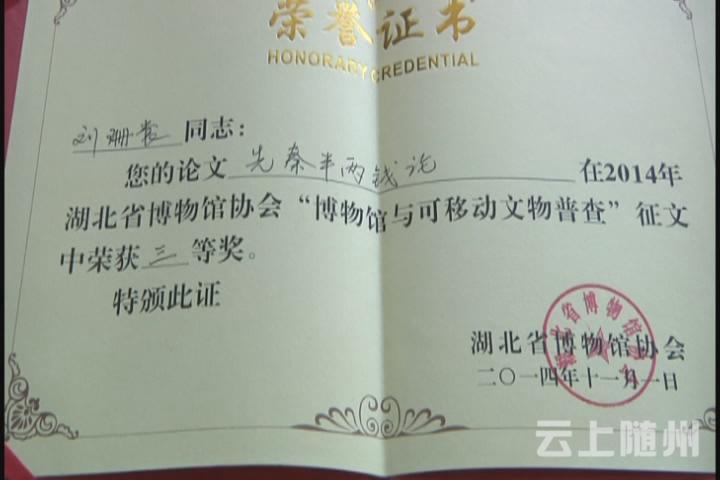 荣誉证书
HONORARY CREDENTIAL
刘珊 同志：
您的论文 先秦半两钱论 在2014年
湖北省博物馆协会“博物馆与可移动文物普查”征文
中荣获 三 等奖。
特颁此证
湖北省博物馆协会
二〇一四年十一月一日
云上随州